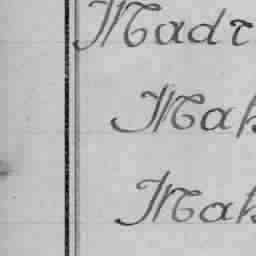 Madr
Mak
Mak